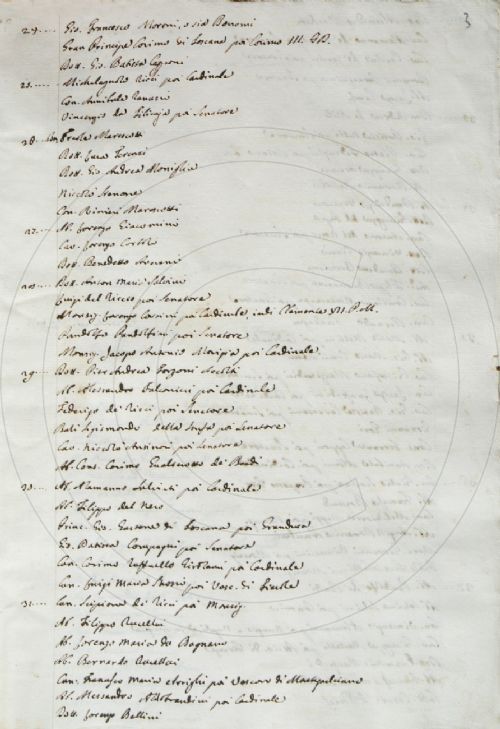 3
Gio. Francesco Moroni, o sia Bononi
Gran Principe Cosimo di Toscana poi Cosimo III. GD.
Dott. Gio. Batista
Michelagnolo Ricci poi Cardinale
Con. Annibale Ranuzzi
Vincenzio da Filicaja poi Senatore
28. Marescotti
Dott. Luca Terenzi
Dott. Gio. Andrea Moniglia
Niccolò Stenone
Con. Marescotti
Ab. Lorenzo Giacomini
Cav. Lorenzo
Dott. Benedetto
Dott. Anton Maria Salvini
Luigi del Riccio poi Senatore
Monsig. Lorenzo Corsini poi Cardinale, indi Clemente XII. P.M.
Pandolfo Pandolfini poi Senatore
Monsig. Jacopo Antonio Morigia poi Cardinale
29 Dott. Pier Andrea Forzoni Accolti
Ab. Alessandro Falconieri poi Cardinale
Federigo de' Ricci poi Senatore
Balì Sigismondo della Stufa poi Senatore
Cav. Niccolò poi Senatore
Ab. Con. Cosimo Gualterotto de' Bardi
30 Ab. Alamanno Salviati poi Cardinale
Ab. Filippo del Nero
Princ. Gio. Gastone di Toscana poi Granduca
Gio. Batista Compagni poi Senatore
Can. Cosimo Raffaello Girolami poi Cardinale
Can. Luigi Maria poi Vesc. di Fiesole
31 Can. Scipione de' Ricci poi Monsig.
Ab. Filippo Rucellai
Ab. Lorenzo Maria da Bagnano
Ab. Bernardo Rucellai
Can. Francesco Maria Arrighi poi Vescovo di Montepulciano
Ab. Alessandro Aldobrandini poi Cardinale
Dott. Lorenzo Bellini